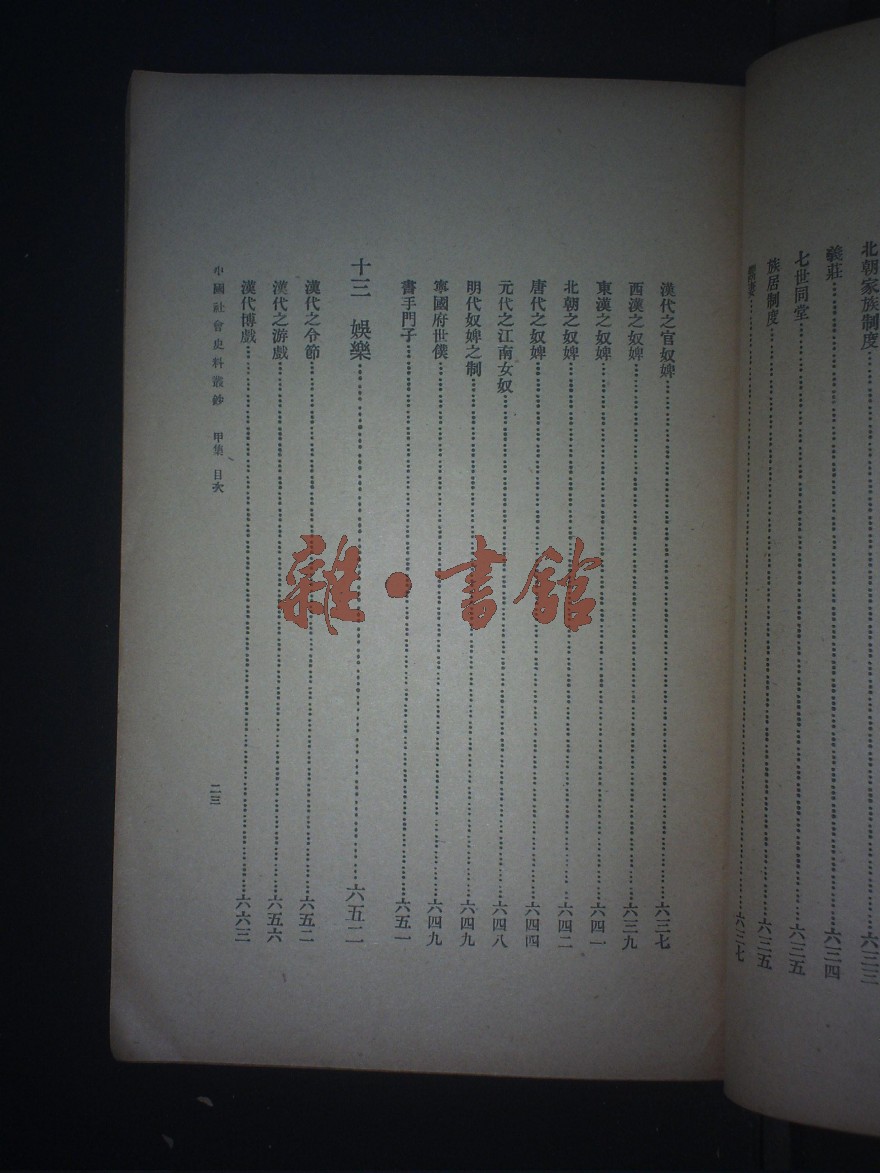 北朝家族制度……六三三
義莊……六三四
七世同堂……六三五
族居制度……六三五
……六三七
漢代之官奴婢……六三七
西漢之奴婢……六三九
東漢之奴婢……六四一
北朝之奴婢……六四二
唐代之奴婢……六四四
元代之江南女奴……六四八
明代奴婢之制……六四九
寧國府世僕……六四九
書手門子……六五一
十三 娛樂……六五二
漢代之令節……六五二
漢代之游戲……六五六
漢代博戲……六六三
中國社會史料叢鈔 甲集 目次
二三
雜·書館